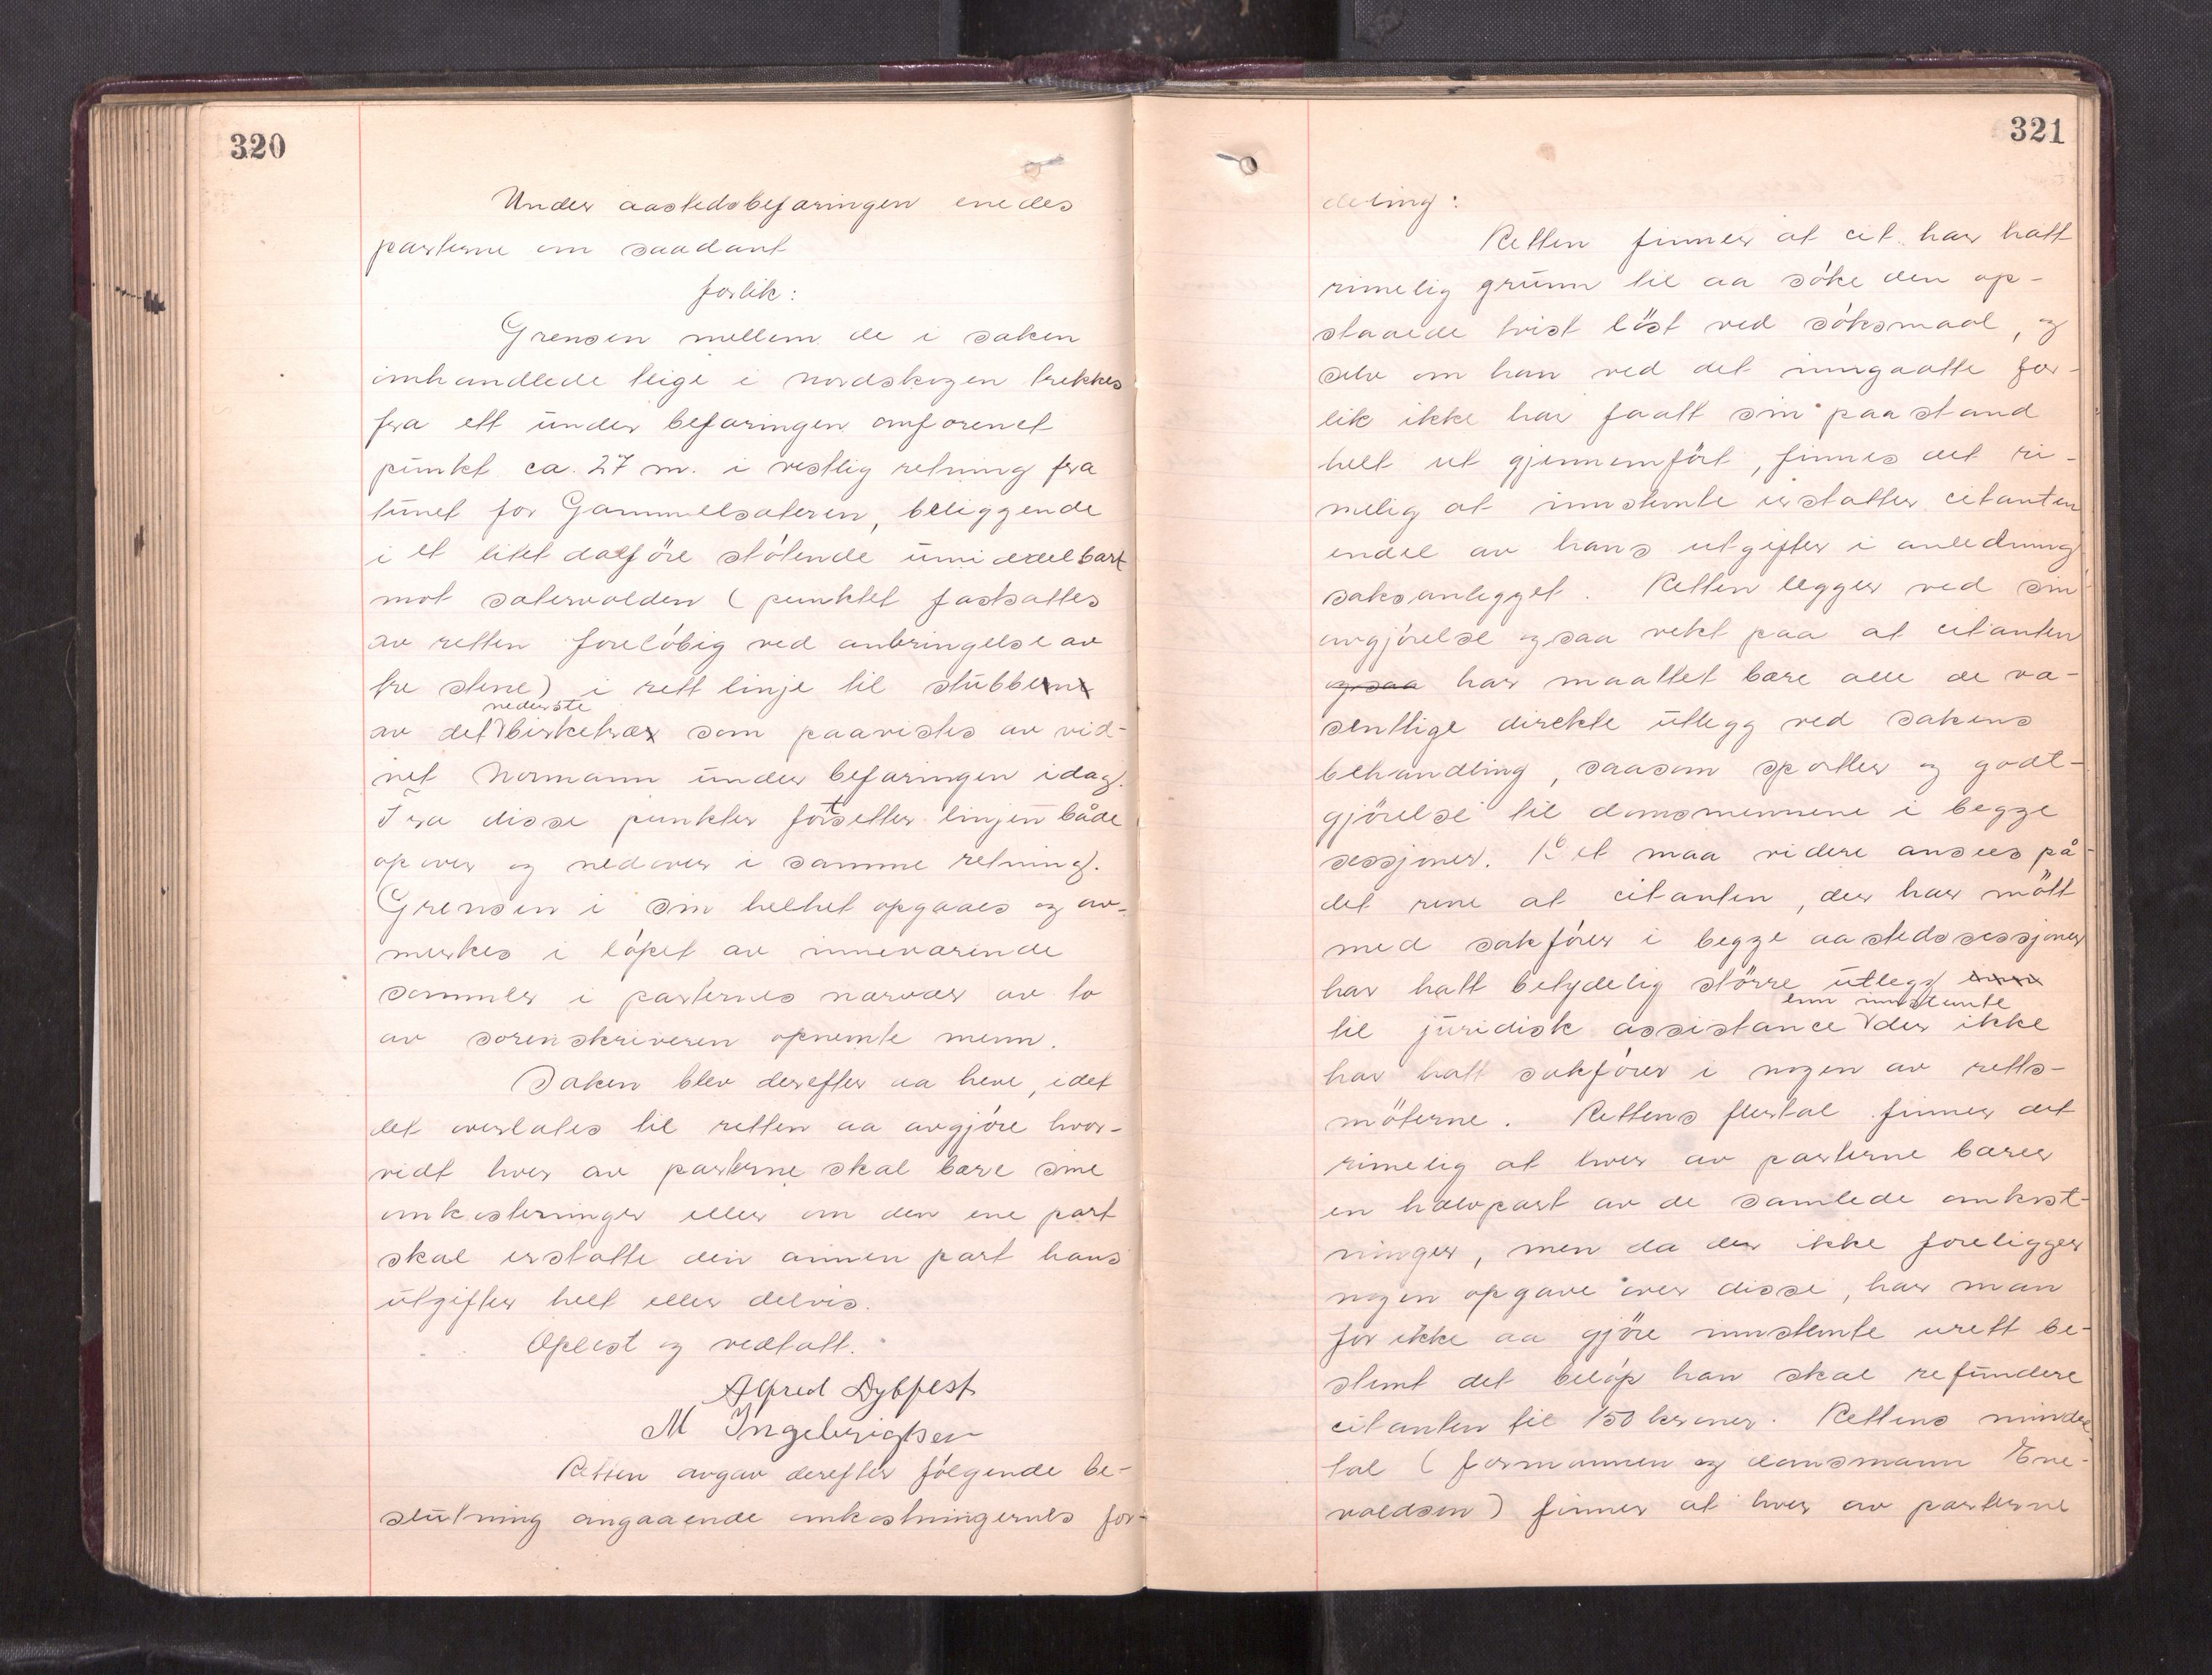 320
Under aastedsbefaringen enedes
parterne om saadant
forlik:
Grensen mellem de i saken
omhandlede teige i nordskogen trekkes
fra ett under befaringen omforenet
punkt ca. 27 m. i vestlig retning fra
tunet for Gammelsæteren, beliggende
i et litet dalföre stötende umiddelbart
mot sætervolden (punktet fastsattes
av retten forelöbig ved anbringelse av
tre stene) i rett linje til stubben
nederste
av det birketræ som paavistes av vid-
net Normann under befaringen idag.
Fra disse punkter fortsetter linjen både
opover og nedover i samme retning.
Grensen i sin helhet opgaaes og av-
merkes i löpet av inneværende
sommer i parternes nærvær av to
av sorenskriveren opnemte menn.
Saken blev derefter aa heve, idet
det overlates til retten aa avgjöre hvor-
vidt hver av parterne skal bære sine
omkosterninger eller om den ene part
skal erstatte den annen part hans
utgifter helt eller delvis.
Oplest og vedtatt.
Alfred Dybfest
M Ingebrigtsen
Retten avgav derefter fölgende be-
slutning angaaende omkostningernes for-
321
deling:
Retten finner at cit. har hatt
rimelig grunn til aa söke den op-
staaede tvist löst ved söksmaal, og
selv om han ved det inngaatte for-
lik ikke har faatt sin paastand
helt ut gjennemfört, finnes det ri-
melig at innstemte erstatter citanten
endel av hans utgifter i anledning
saksanlegget. Retten legger ved sin
avgjörelse ogsaa vekt paa at citanten
ogsaa har maattet bære alle de væ-
sentlige direkte utlegg ved sakens
behandling, saasom sportler og godt-
gjörelse til domsmennene i begge
sessjoner. Det maa videre ansees på
det rene at citanten, der har mött
med sakförer i begge aastedssessjoner
har hatt betydelig större utlegg enn
enn innstemte
til juridisk assistance der ikke
har hatt sakförer i nogen av retts-
möterne. Rettens flertal finner det
rimelig at hver av parterne bærer
en halvpart av de samlede omkost-
ninger, men da der ikke foreligger
nogen opgave over disse, har man
for ikke aa gjöre innstemte urett be-
stemt det belöp han skal refundere
citanten til 150 kroner. Rettens mindre
tal (formannen og domsmann Ene-
voldsen) finner at hver av parterne